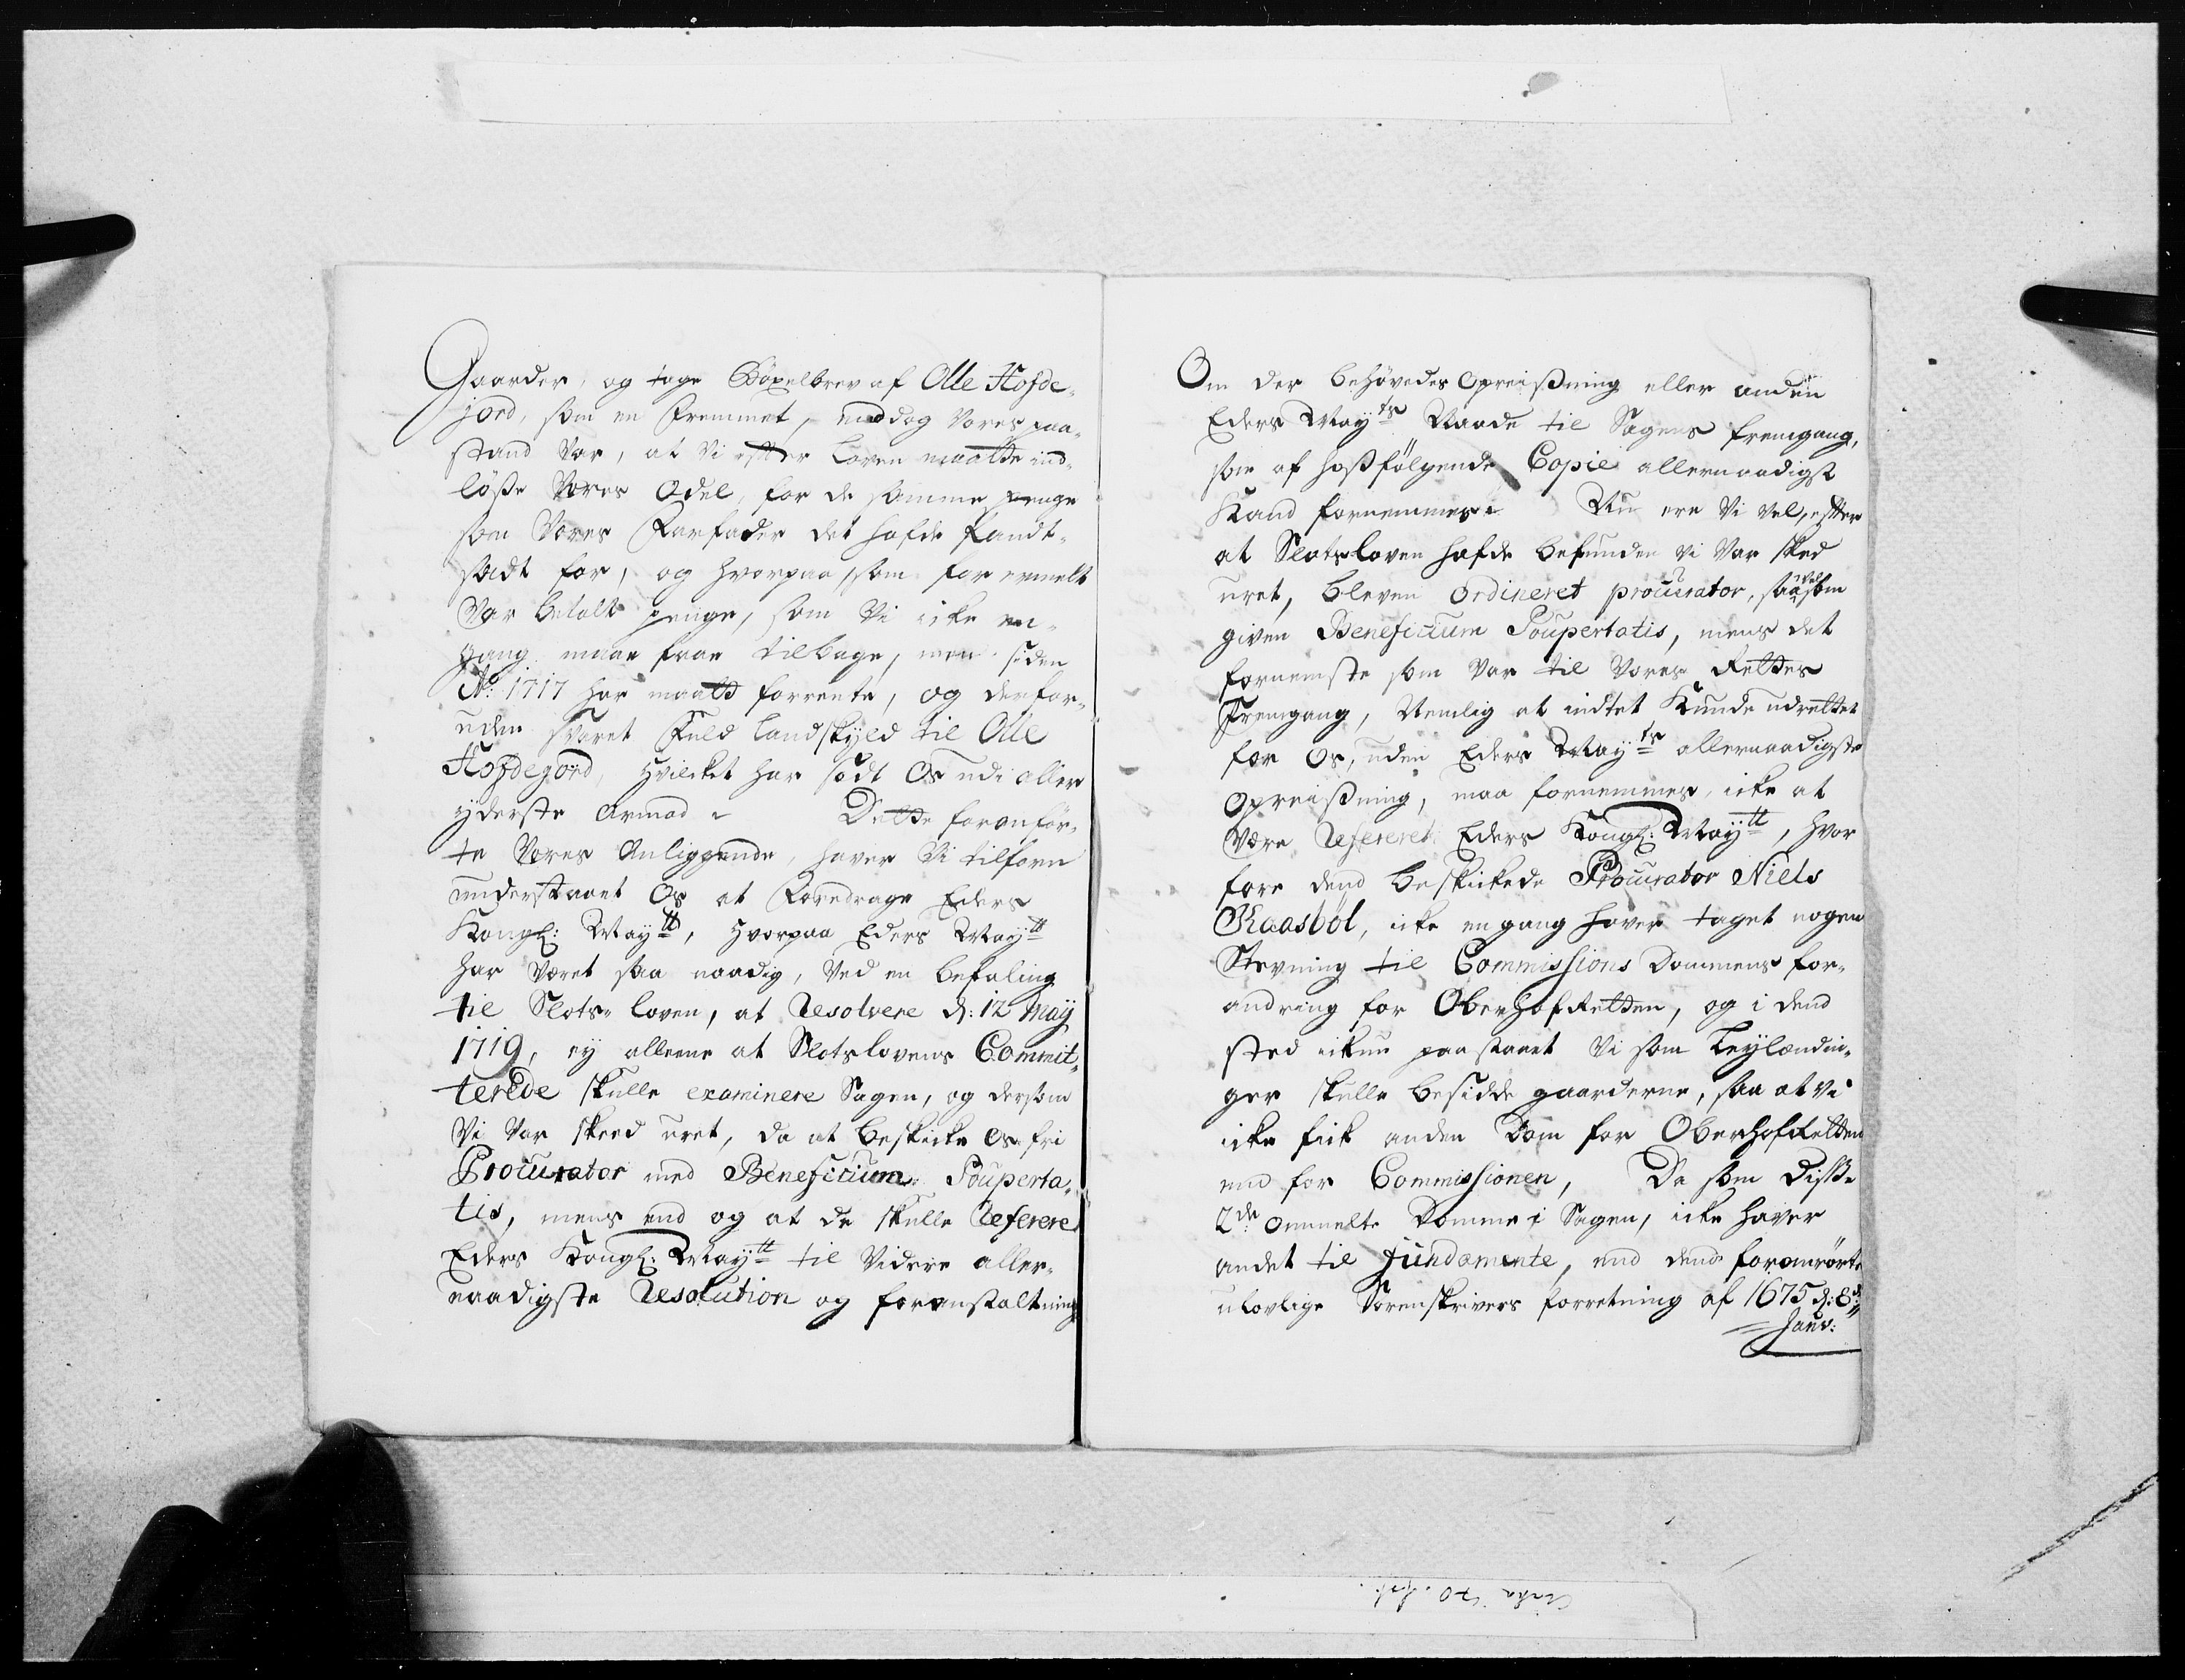 Gaarder, og tage Böxelbrev af Olle Hofde-
jord, som en Fremmet, end dog Vores paa-
stand Var, at Vi efter Loven maatte ind-
löße Vores Odel, for de samme penge
som Vores Farfader det hafde pandt-
sadt for, og hvorpaa, som for ermelt
Var betalt penge, som Vi icke en-
gang maae faae tilbage, men siden
Ao: 1717 har maatt forrente, og derfor-
uden svaret Fuld Landskyld til Olle
Hofdejord, hvilcket har södt Os udi aller
yderste Armod. Dette foranför-
te Vores Anliggende, haver Vi tilforn
understaaet Os at Foredrage Eders
Kongl: Maytt, hvorpaa Eders Maytt
har været saa naadig, Ved en befaling
til Slots-loven, at Resolvere d: 12 May
1719, ey alleene at Slotslovens Commit-
terede skulle examinere Sagen, og dersom
Vi Var skeed uret, da at beskicke Os fri
Procurator med Beneficium Pouperta-
tis, mens end og at de skulle Referere
Eders Kongl: Maytt til Videre aller-
naadigste Resolution og foranstaltning
Om der behövedes Opreißning eller anden
Eders Mayts Naade til Sagens fremgang,
som af hoßfölgende Copie allernaadigst
Kand fornemmes. Nu ere Vi vel, efter
at Slotsloven hafde befunden Vi Var skeed
uret, bleven ordineret procurator, saavelsom
given Beneficium Poupertatis, mens det
fornemste som Var til Vores Rettes
Fremgang, Nemlig at indtet Kunde udrettet
for Os, uden Eders Mayts allernaadigste
Opreißning, maa fornemmes, icke at
Være Refereret Eders Kongl: Maytt, hvor
fore dend beskickede Procurator Niels
Kaasböl, icke engang haver taget nogen
Stevning til Commissions Dommens for-
andring for Oberhofretten, og i dend
sted ickun paastaaet Vi som Leylændin-
ger skulle besidde gaarderne, saa at Vi
icke fick anden Dom for Oberhofretten
end for Commissionen, Da som Disse
2de ommelte Domme i Sagen, icke haver
andet til Fundamente, end dend foranrörte
ulovlige Sorenskrivers forretning af 1675 d: 8de
Janv: